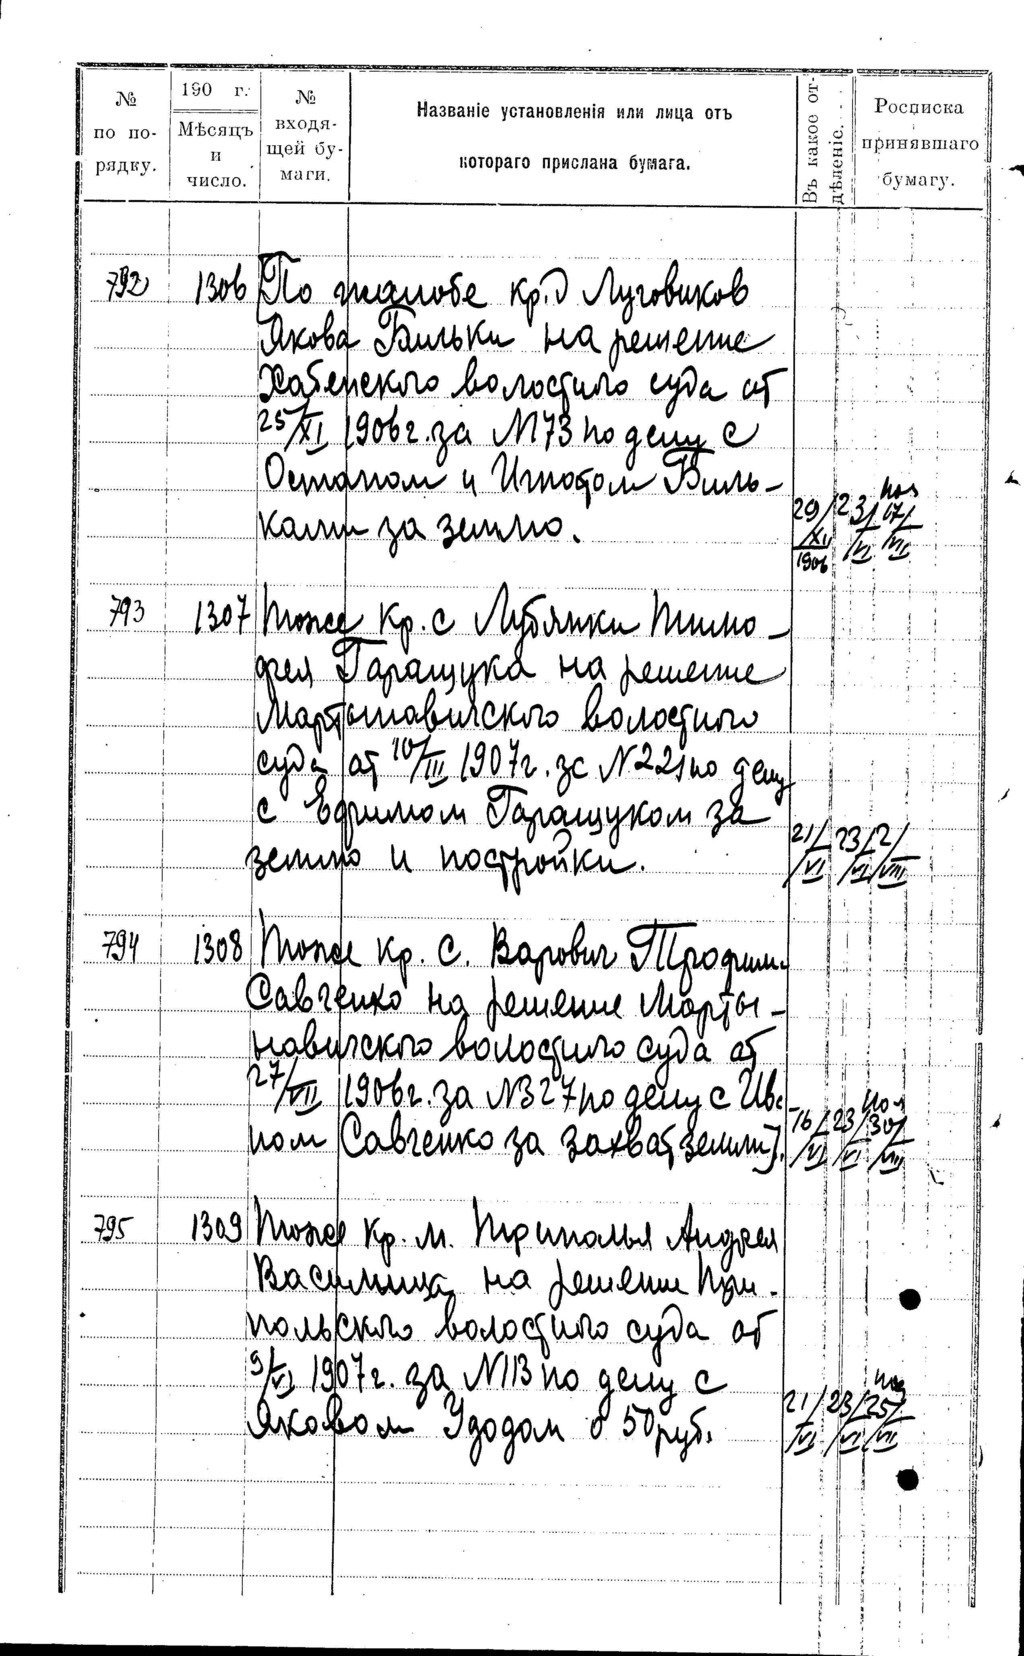 № по по-рядку.
190 г. Мѣсяцъ и число.
№ входя-щей бу-маги.
Названіе установленія или лица отъ
котораго прислана бумага.
Въ какое от-дѣленіе.
Росписка принявшаго бумагу.
792 1306 По жалобе кр. д Луговиков
Якова Бильки на решение
Хабенского волостного суда от
25/XI 1906г. за №73 по делу с
Остапом и Игнатом Биль-
ками за землю.
29/XII 1906 23/VI 17/VII
793 1307 Тоже кр. с Лубянки Тимо-
фея Гаращука на решение
Мартыновичского волостного
суда от 10/III 1907г. за №221 по делу
с Ефимом Гаращуком за
землю и постройки.
21/VI 23/VI 2/VIII
794 1308 Тоже кр. с. Варович Трофим
Савченко на решение Марты-
новичского волостного суда от
27/VII 1906г. за №327 по делу с Ива
ном Савченко за захват земли].
16/VI 23/VI 30/VII
795 1309 Тоже кр. м. Триполья Андрея
на решение Три-
польского волостного суда от
9/VI 1907г. за №113 по делу с
Яковом Удодом о 50 руб.
21/VI 23/VI 25/VII